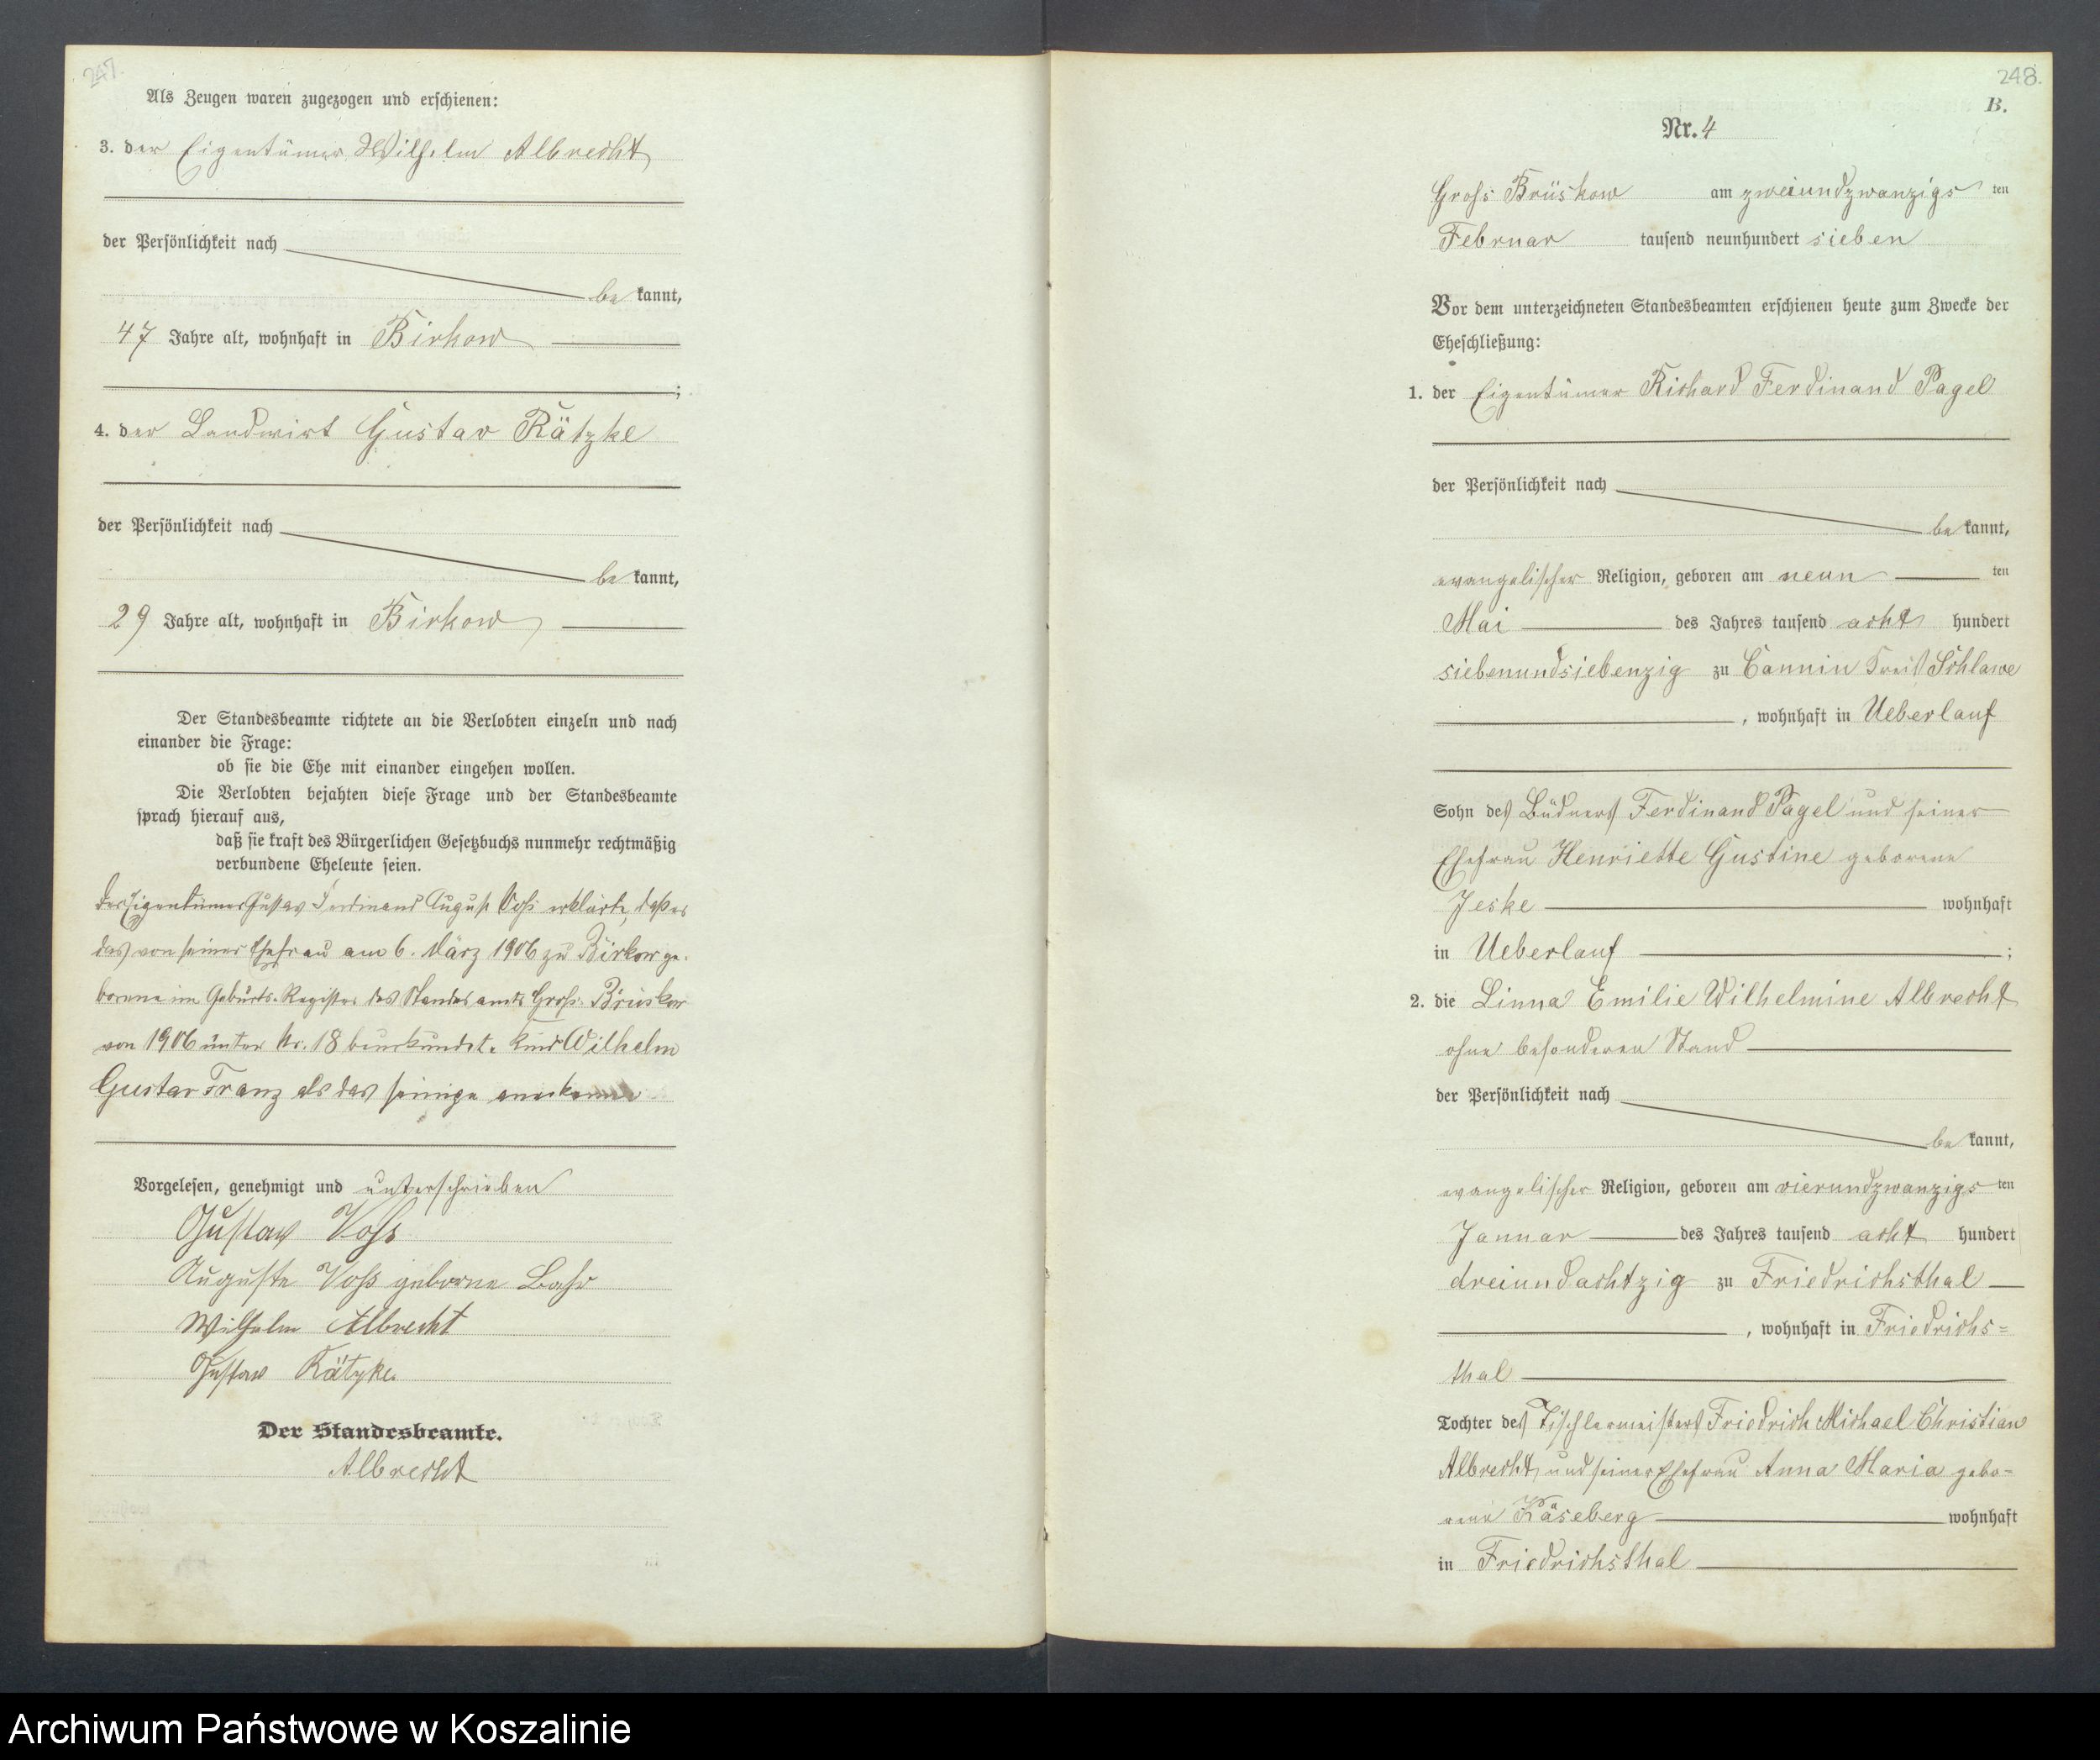 247.
Als Zeugen waren zugezogen und erschienen:
3. der Eigentümer Wilhelm Albrecht
der Persönlichkeit nach
be kannt,
47 Jahre alt, wohnhaft in Birkow
;
4. der Landwirt Gustav Rätzke
der Persönlichkeit nach
be kannt,
29 Jahre alt, wohnhaft in Birkow
Der Standesbeamte richtete an die Verlobten einzeln und nach
einander die Frage:
ob sie die Ehe mit einander eingehen wollen.
Die Verlobten bejahten diese Frage und der Standesbeamte
sprach hierauf aus,
daß sie kraft des Bürgerlichen Gesetzbuchs nunmehr rechtmäßig
verbundene Eheleute seien.
Der Eigentümer Gustav Ferdinand August Voß erklärte, daß er
das von seiner Ehefrau am 6. März 1906 zu Birkow ge-
borene im Geburts-Register des Standesamts Groß-Brüskow
von 1906 unter Nr. 18 beurkundete Kind Wilhelm
Gustav Franz als das seinige anerkenne
Vorgelesen, genehmigt und unterschrieben
Gustav Voß
Auguste Voß geborne
Wilhelm Albrecht
Gustav Rätzke
Der Standesbeamte.
Albrecht
248.
B.
Nr. 4
Groß-Brüskow am zweiundzwanzigs ten
Februar tausend neunhundert sieben
Vor dem unterzeichneten Standesbeamten erschienen heute zum Zwecke der
Eheschließung:
1. der Eigentümer Richard Ferdinand Pagel
der Persönlichkeit nach
be kannt,
evangelischer Religion, geboren am neun ten
Mai des Jahres tausend acht hundert
siebenundsiebenzig zu Cannin Kreis Schlawe
, wohnhaft in Ueberlauf
Sohn des Büdners Ferdinand Pagel und seiner
Ehefrau Henriette Gustine geborene
Jeske wohnhaft
in Ueberlauf ;
2. die Linna Emilie Wilhelmine Albrecht
ohne besonderen Stand
der Persönlichkeit nach
be kannt,
evangelischer Religion, geboren am vierundzwanzigs ten
Januar des Jahres tausend acht hundert
dreiundachtzig zu Friedrichsthal
, wohnhaft in Friedrichs=
thal
Tochter des Tischlermeisters Friedrich Michael Christian
Albrecht und seiner Ehefrau Anna Maria gebo-
rene Käseberg wohnhaft
in Friedrichsthal
Archiwum Państwowe w Koszalinie